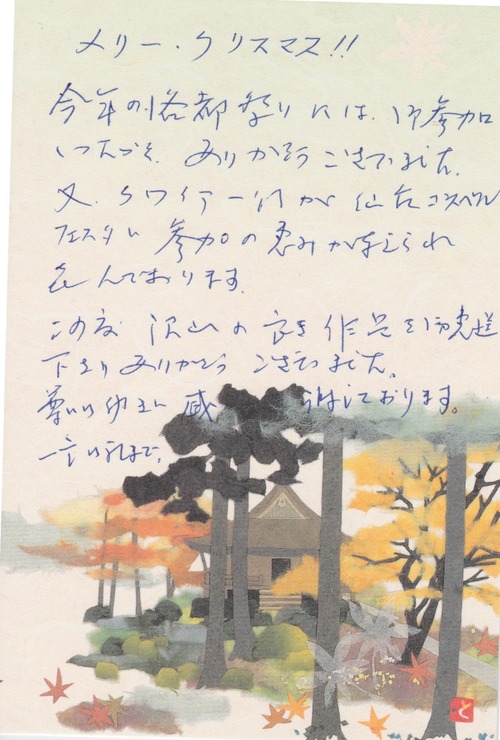 メリー・クリスマス!!
今年の 都祭りには、御参加
いただき、ありがとうございました。
又、クワイアー が仙台ゴスペル
フェスタに参加の恵みが与えられ
んでおります。
この度 沢山の良き作品を御恵送
下さりありがとうございました。
尊い 感謝しております。
一言御礼まで。
と